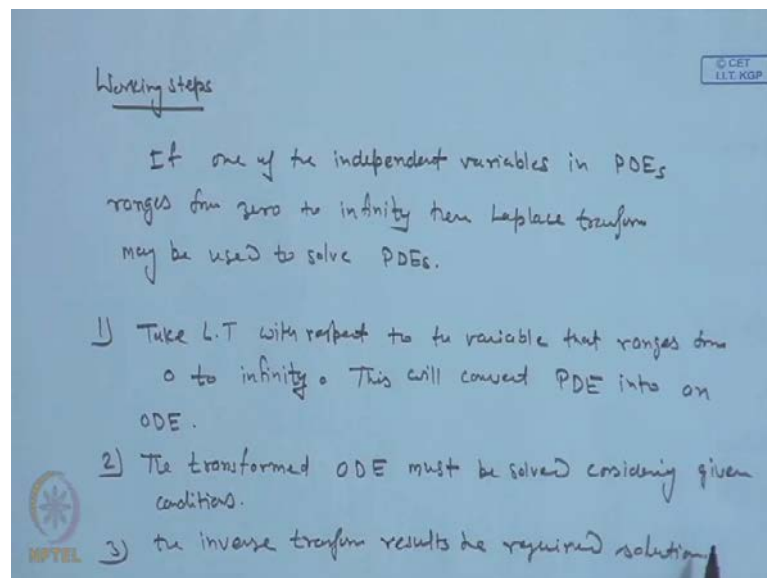 © CET
I.I.T. KGP
Working steps
If one of the independent variables in PDEs
ranges from zero to infinity then Laplace transform
may be used to solve PDEs.
1) Take L.T with respect to the variable that ranges from
0 to infinity. This will convert PDE into an
ODE.
2) The transformed ODE must be solved considering given
conditions.
3) the inverse transform results the required solution
NPTEL